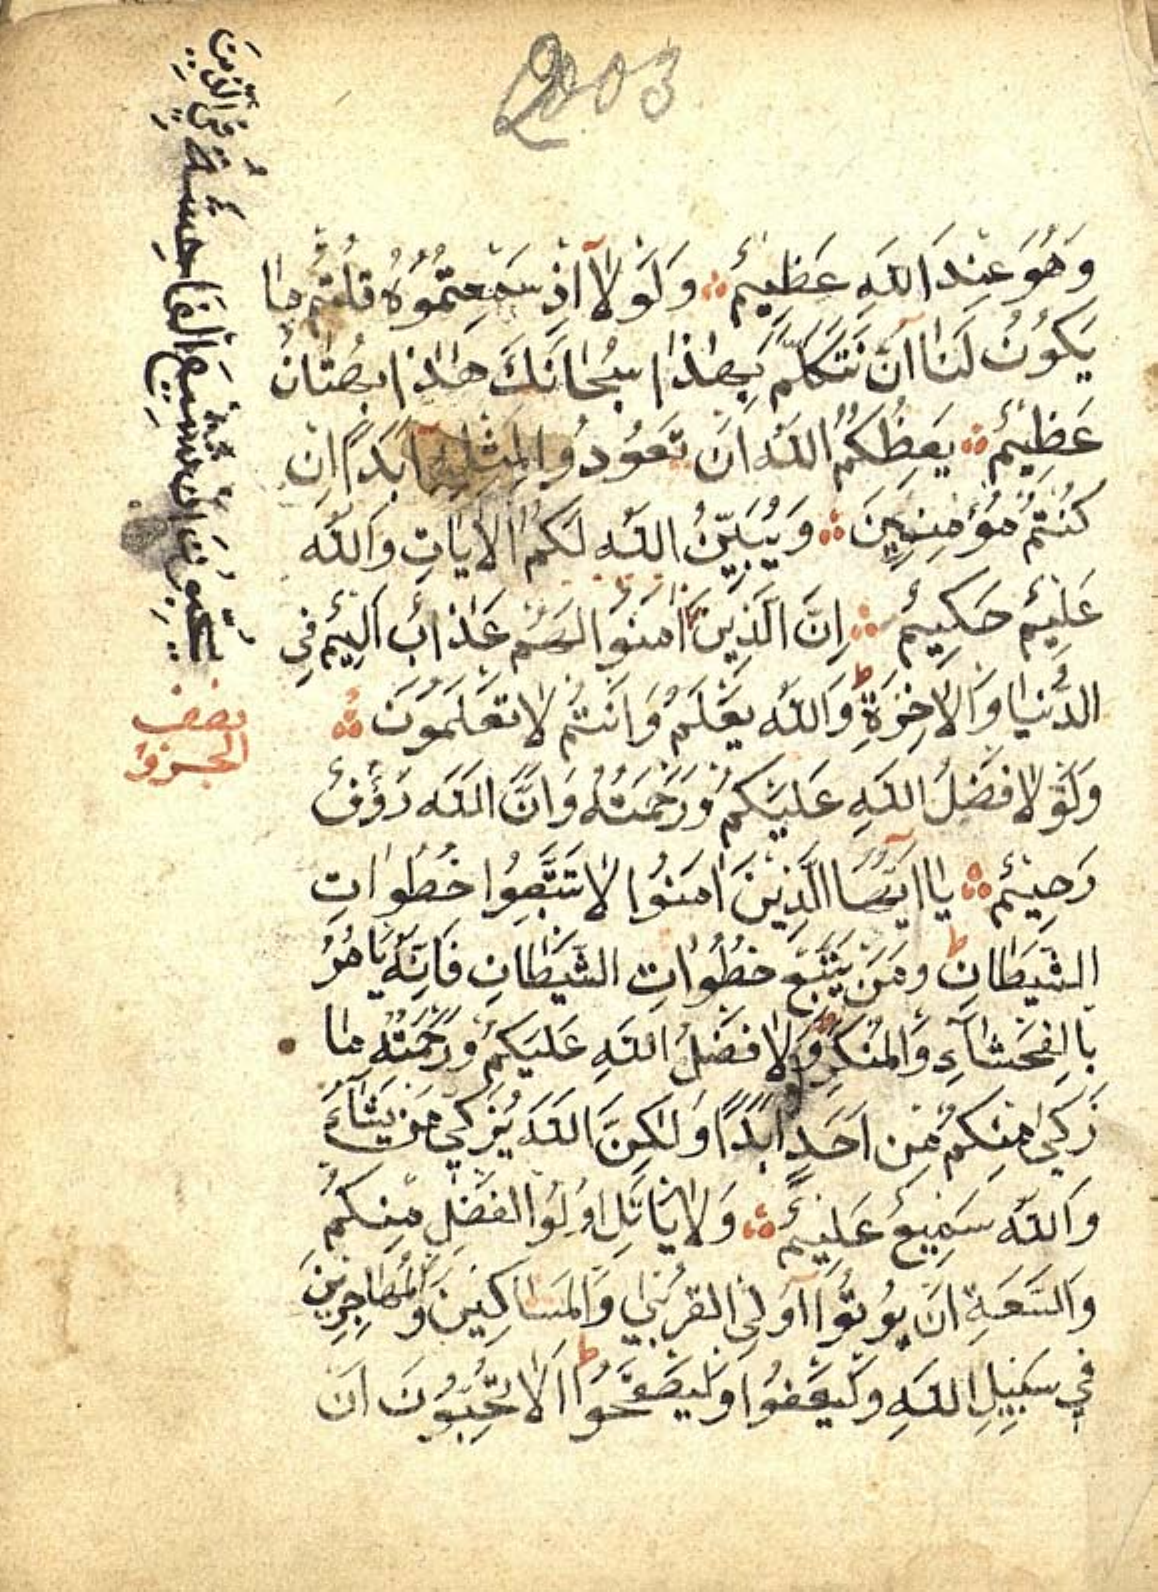 2003
وَهُوَ عِنْدَ اللّٰهِ عَظِيمٌ ۞ وَلَوْلَا اِذْ سَمِعْتُمُوهُ قُلْتُمْ مَا
يَكُونُ لَنَا اَنْ نَتَكَلَّمَ بِهٰذَا سُبْحَانَكَ هٰذَا بُهْتَانٌ
عَظِيمٌ ۞ يَعِظُكُمُ اللّٰهُ اَنْ تَعُودُوا لِمِثْلِهِ اَبَدًا اِنْ
كُنْتُمْ مُؤْمِنِينَ ۞ وَيُبَيِّنُ اللّٰهُ لَكُمُ الْاٰيَاتِ وَاللّٰهُ
عَلِيمٌ حَكِيمٌ ۞ اِنَّ الَّذِينَ اٰمَنُوا لَهُمْ عَذَابٌ اَلِيمٌ فِي
الدُّنْيَا وَالْاٰخِرَةِ ط وَاللّٰهُ يَعْلَمُ وَاَنْتُمْ لَا تَعْلَمُونَ ۞
وَلَوْلَا فَضْلُ اللّٰهِ عَلَيْكُمْ وَرَحْمَتُهُ وَاَنَّ اللّٰهَ رَؤُفٌ
رَحِيمٌ ۞ يَا اَيُّهَا الَّذِينَ اٰمَنُوا لَا تَتَّبِعُوا خُطُوَاتِ
الشَّيْطَانِ ط وَمَنْ يَتَّبِعْ خُطُوَاتِ الشَّيْطَانِ فَاِنَّهُ يَاْمُرُ
بِالْفَحْشَاءِ وَالْمُنْكَرِ وَلَوْلَا فَضْلُ اللّٰهِ عَلَيْكُمْ وَرَحْمَتُهُ مَا
زَكٰى مِنْكُمْ مِنْ اَحَدٍ اَبَدًا وَلٰكِنَّ اللّٰهَ يُزَكِّي مَنْ يَشَاءُ
وَاللّٰهُ سَمِيعٌ عَلِيمٌ ۞ وَلَا يَاْتَلِ اُولُوا الْفَضْلِ مِنْكُمْ
وَالسَّعَةِ اَنْ يُؤْتُوا اُولِي الْقُرْبٰى وَالْمَسَاكِينَ وَالْمُهَاجِرِينَ
فِي سَبِيلِ اللّٰهِ وَلْيَعْفُوا وَلْيَصْفَحُوا ط اَلَا تُحِبُّونَ اَنْ
يُحِبُّونَ اَنْ تَشِيعَ الْفَاحِشَةُ فِي الَّذِينَ
نصف
الحزب